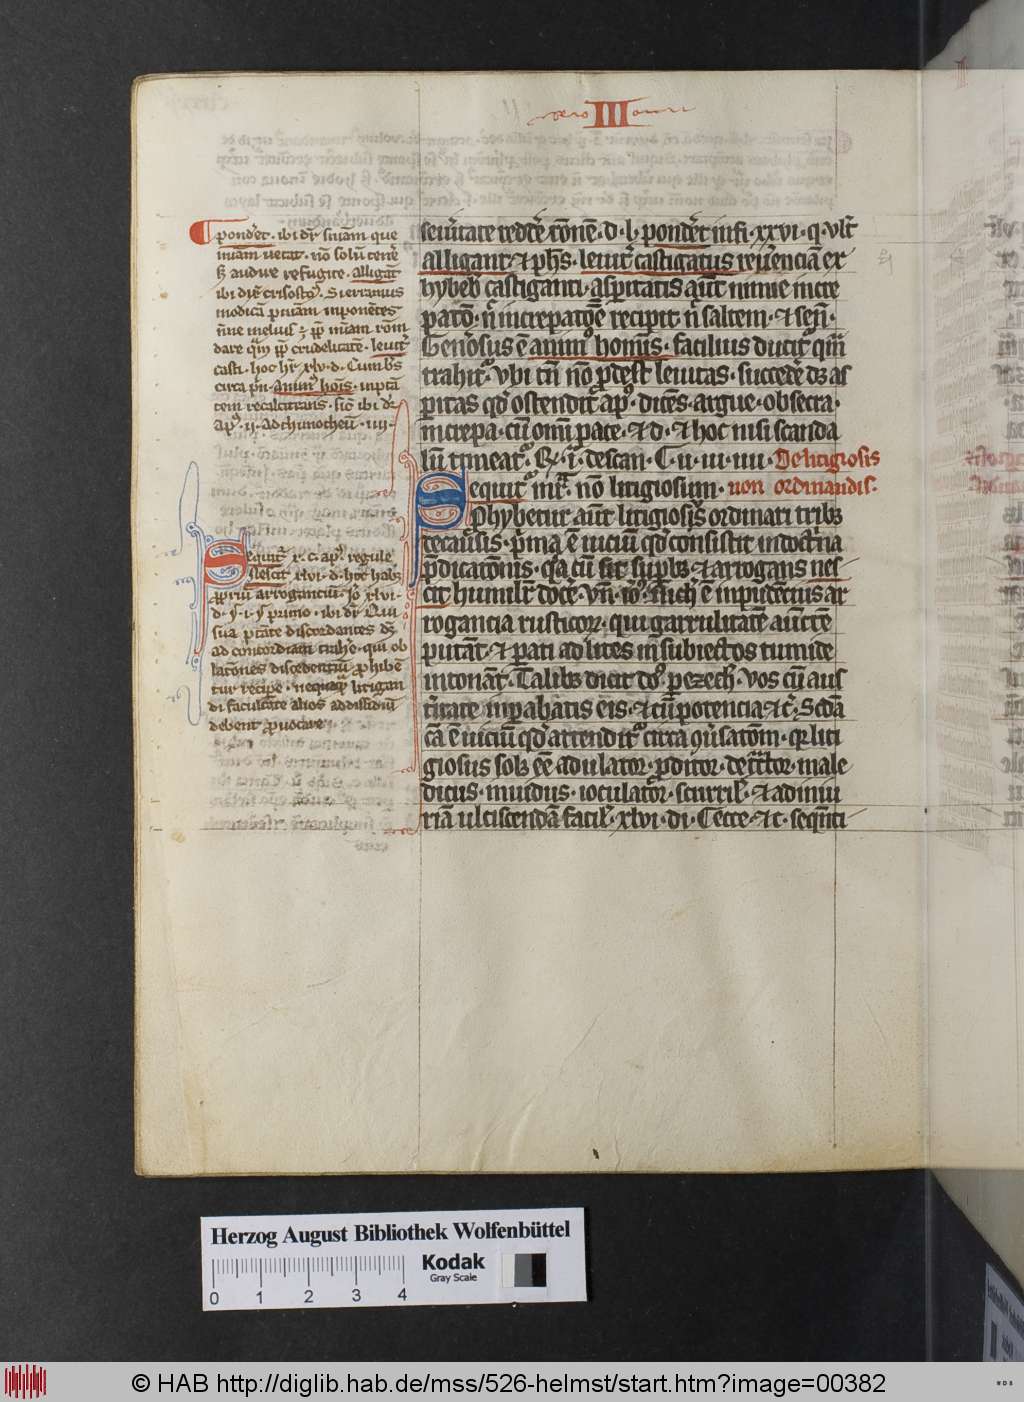 III
ponder̄t . ibi dr̄ sniam que
nuam uetat . no solū tene
sꝫ audire refugite . alligāt
ibi dīc crisosto . Si erramus
modicā pniam inponentes
casti . hoc hr̄ xlv . d . Cum bs
circa pn . Animꝰ hois . inpta
tem recalcitrans . sic ibi dr̄
apꝰ . ii . ad thimotheū . iiii .
equit̄ r . c . apꝰ regule
Nescit xlvi . d . hoc habꝫ
ꝓpriū arrogancium . Jo xlvi .
d . § . i . § primo . ibi dr̄ Qui
sua ꝑtate discordantes dꝫ
ad concordiam trahe . qui ob
lationes discedentium ꝓhiben
tur recipe . nequaqꝫ litigan
di facultate alios ad dissidiū
debent ꝓuocare
seuitate reddē rōnē . d . l . ponder̄t infi . xxvi . q . vlt̄
alligant . ⁊ phs . leuit̄ castigatus reuēnciā ex
hybeb castiganti . aspitatis aūt nimie incre
patō . n̄ increpatōe recipit n̄ saltem . ⁊ sen̄ .
Genosus ē animꝰ homis . facilius ducitꝰ qm̄
trahitꝰ . vbi tn̄ nō ꝓdest leuitas . succede dꝫ as
ꝑitas qd ostendit̄ apꝰ . dicēs . argue . obsecra .
increpa . cū omi pace . ⁊ d . ⁊ hoc nisi scanda
lū timeatꝰ . R . i . descan . C . ii . iii . iiii . De litigiosis
Sequitꝰ int̄ᵃ . nō litigiosum . non ordinandis .
Phybetur aūt litigiosis ordinati tribꝫ
de causis . pma ē uiciū qd consistit in doctna
p̄dicationis . q̄a cū sit supbꝫ ⁊ arrogans nes
cit humilr̄ doce . vn̄ io . nich ē inpudeciꝰ ar
rogancia rusticoꝝ . qui garrulitatē auctē
putāt . ⁊ pati ad lites in subiectos tumide
intonāt . Talibꝫ dicit dōs ꝑ ezech . vos cū aus
titate inpabatis eis . ⁊ cū potencia ⁊ c̄ . Scdā
cā ē uiciū qd attenditꝰ circa quisatōm . qr liti
giosus solꝫ eē adulator . ꝓditor . detctor . male
dicus . inuidus . ioculator . scurrilꝰ . ⁊ ad iniu
riā ulciscendā facilꝰ . xlvi . di . Cecce . ⁊ c . seqnti
Herzog August Bibliothek Wolfenbüttel
Kodak
Gray Scale
0 1 2 3 4
© HAB http://diglib.hab.de/mss/526-helmst/start.htm?image=00382